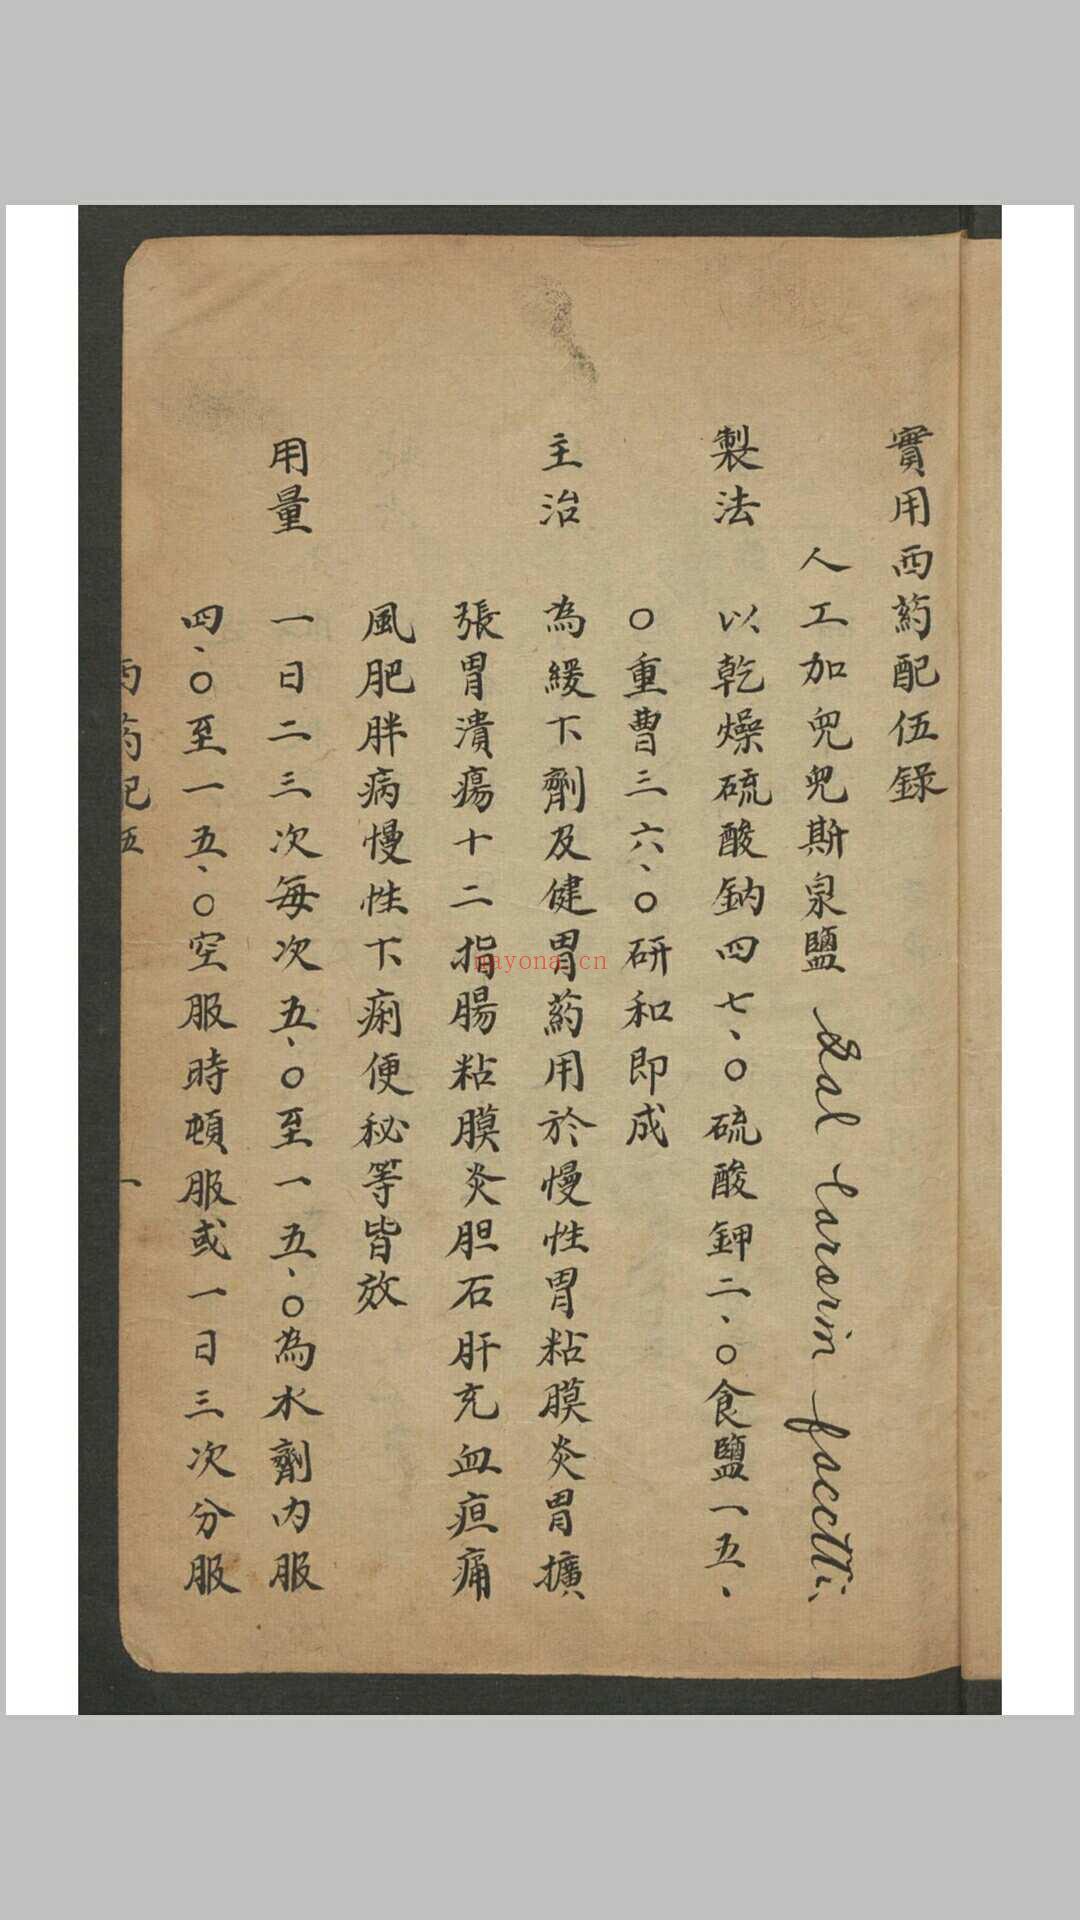 實用西葯配伍錄
人工加兜兜斯泉鹽 Sal Carorin facctti;
製法 以乾燥硫酸鈉四七、〇硫酸鉀二、〇食鹽一五、
〇重曹三六、〇研和即成
主治 為緩下劑及健胃葯用於慢性胃粘膜炎胃擴
張胃潰瘍十二指腸粘膜炎胆石肝充血疸痛
風肥胖病慢性下痢便秘等皆效
用量 一日二三次每次五、〇至一五、〇為水劑內服
四、〇至一五、〇空服時頓服或一日三次分服
西葯配伍 一
nayona.cn